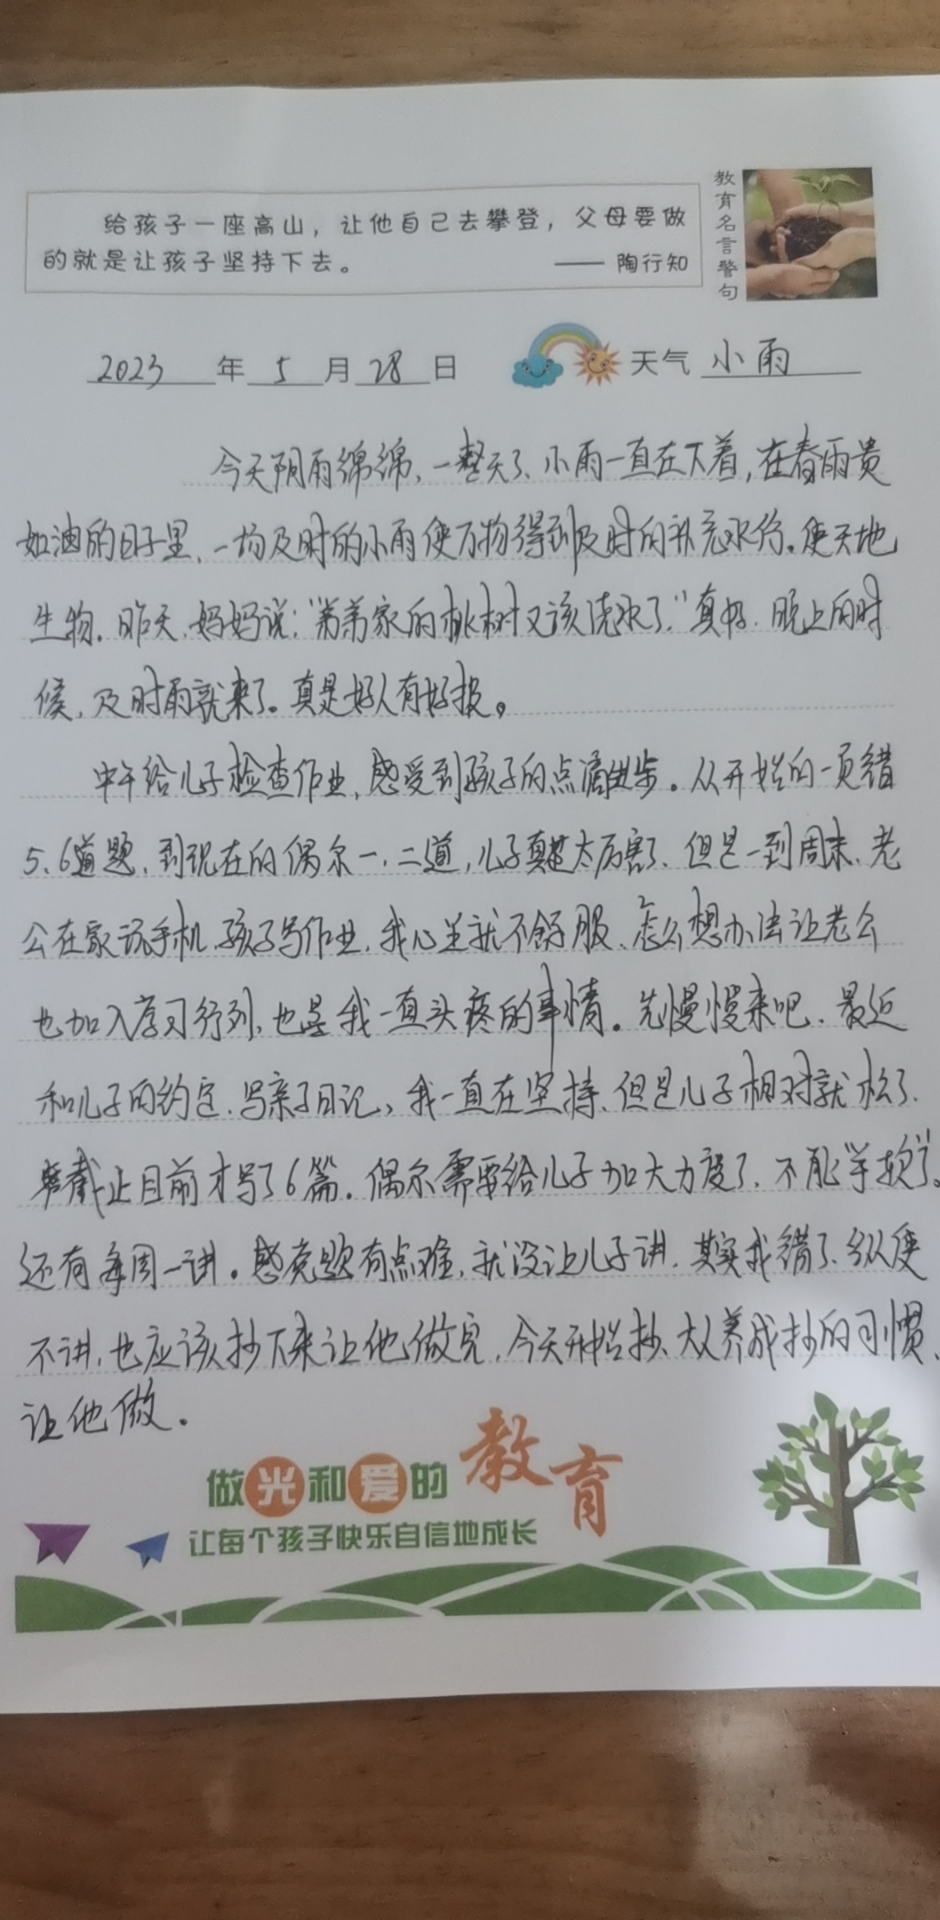 给孩子一座高山，让他自己去攀登，父母要做
的就是让孩子坚持下去。 —— 陶行知
教育名言警句
2023 年 5 月 28 日 天气 小雨
今天阴雨绵绵，一整天了、小雨一直在下着，在春雨贵
如油的日子里、一场及时的小雨使万物得到及时的补充水份。使天地
生物。昨天，妈妈说：“弟弟家的桃树又该浇水了”真好．晚上的时
候，及时雨就来了。真是好人有好报。
中午给儿子检查作业，感受到孩子的点滴进步。从开始的一页错
5、6道题，到现在的偶尔一、二道，儿子真是太厉害了．但是一到周末、老
公在家玩手机，孩子写作业，我心里就不舒服、怎么想办法让老公
也加入学习行列，也是我一直头疼的事情。先慢慢来吧．最近
和儿子的约定．写亲子日记，我一直在坚持、但是儿子相对就松了．
截止目前才写了6篇．偶尔需要给儿子加大力度了．不能“手软”了。
还有每周一讲。感觉题有点难，就没让儿子讲．其实我错了、纵使
不讲，也应该抄下来让他做完，今天开始抄、养成抄的习惯、
让他做。
做光和爱的教育
让每个孩子快乐自信地成长